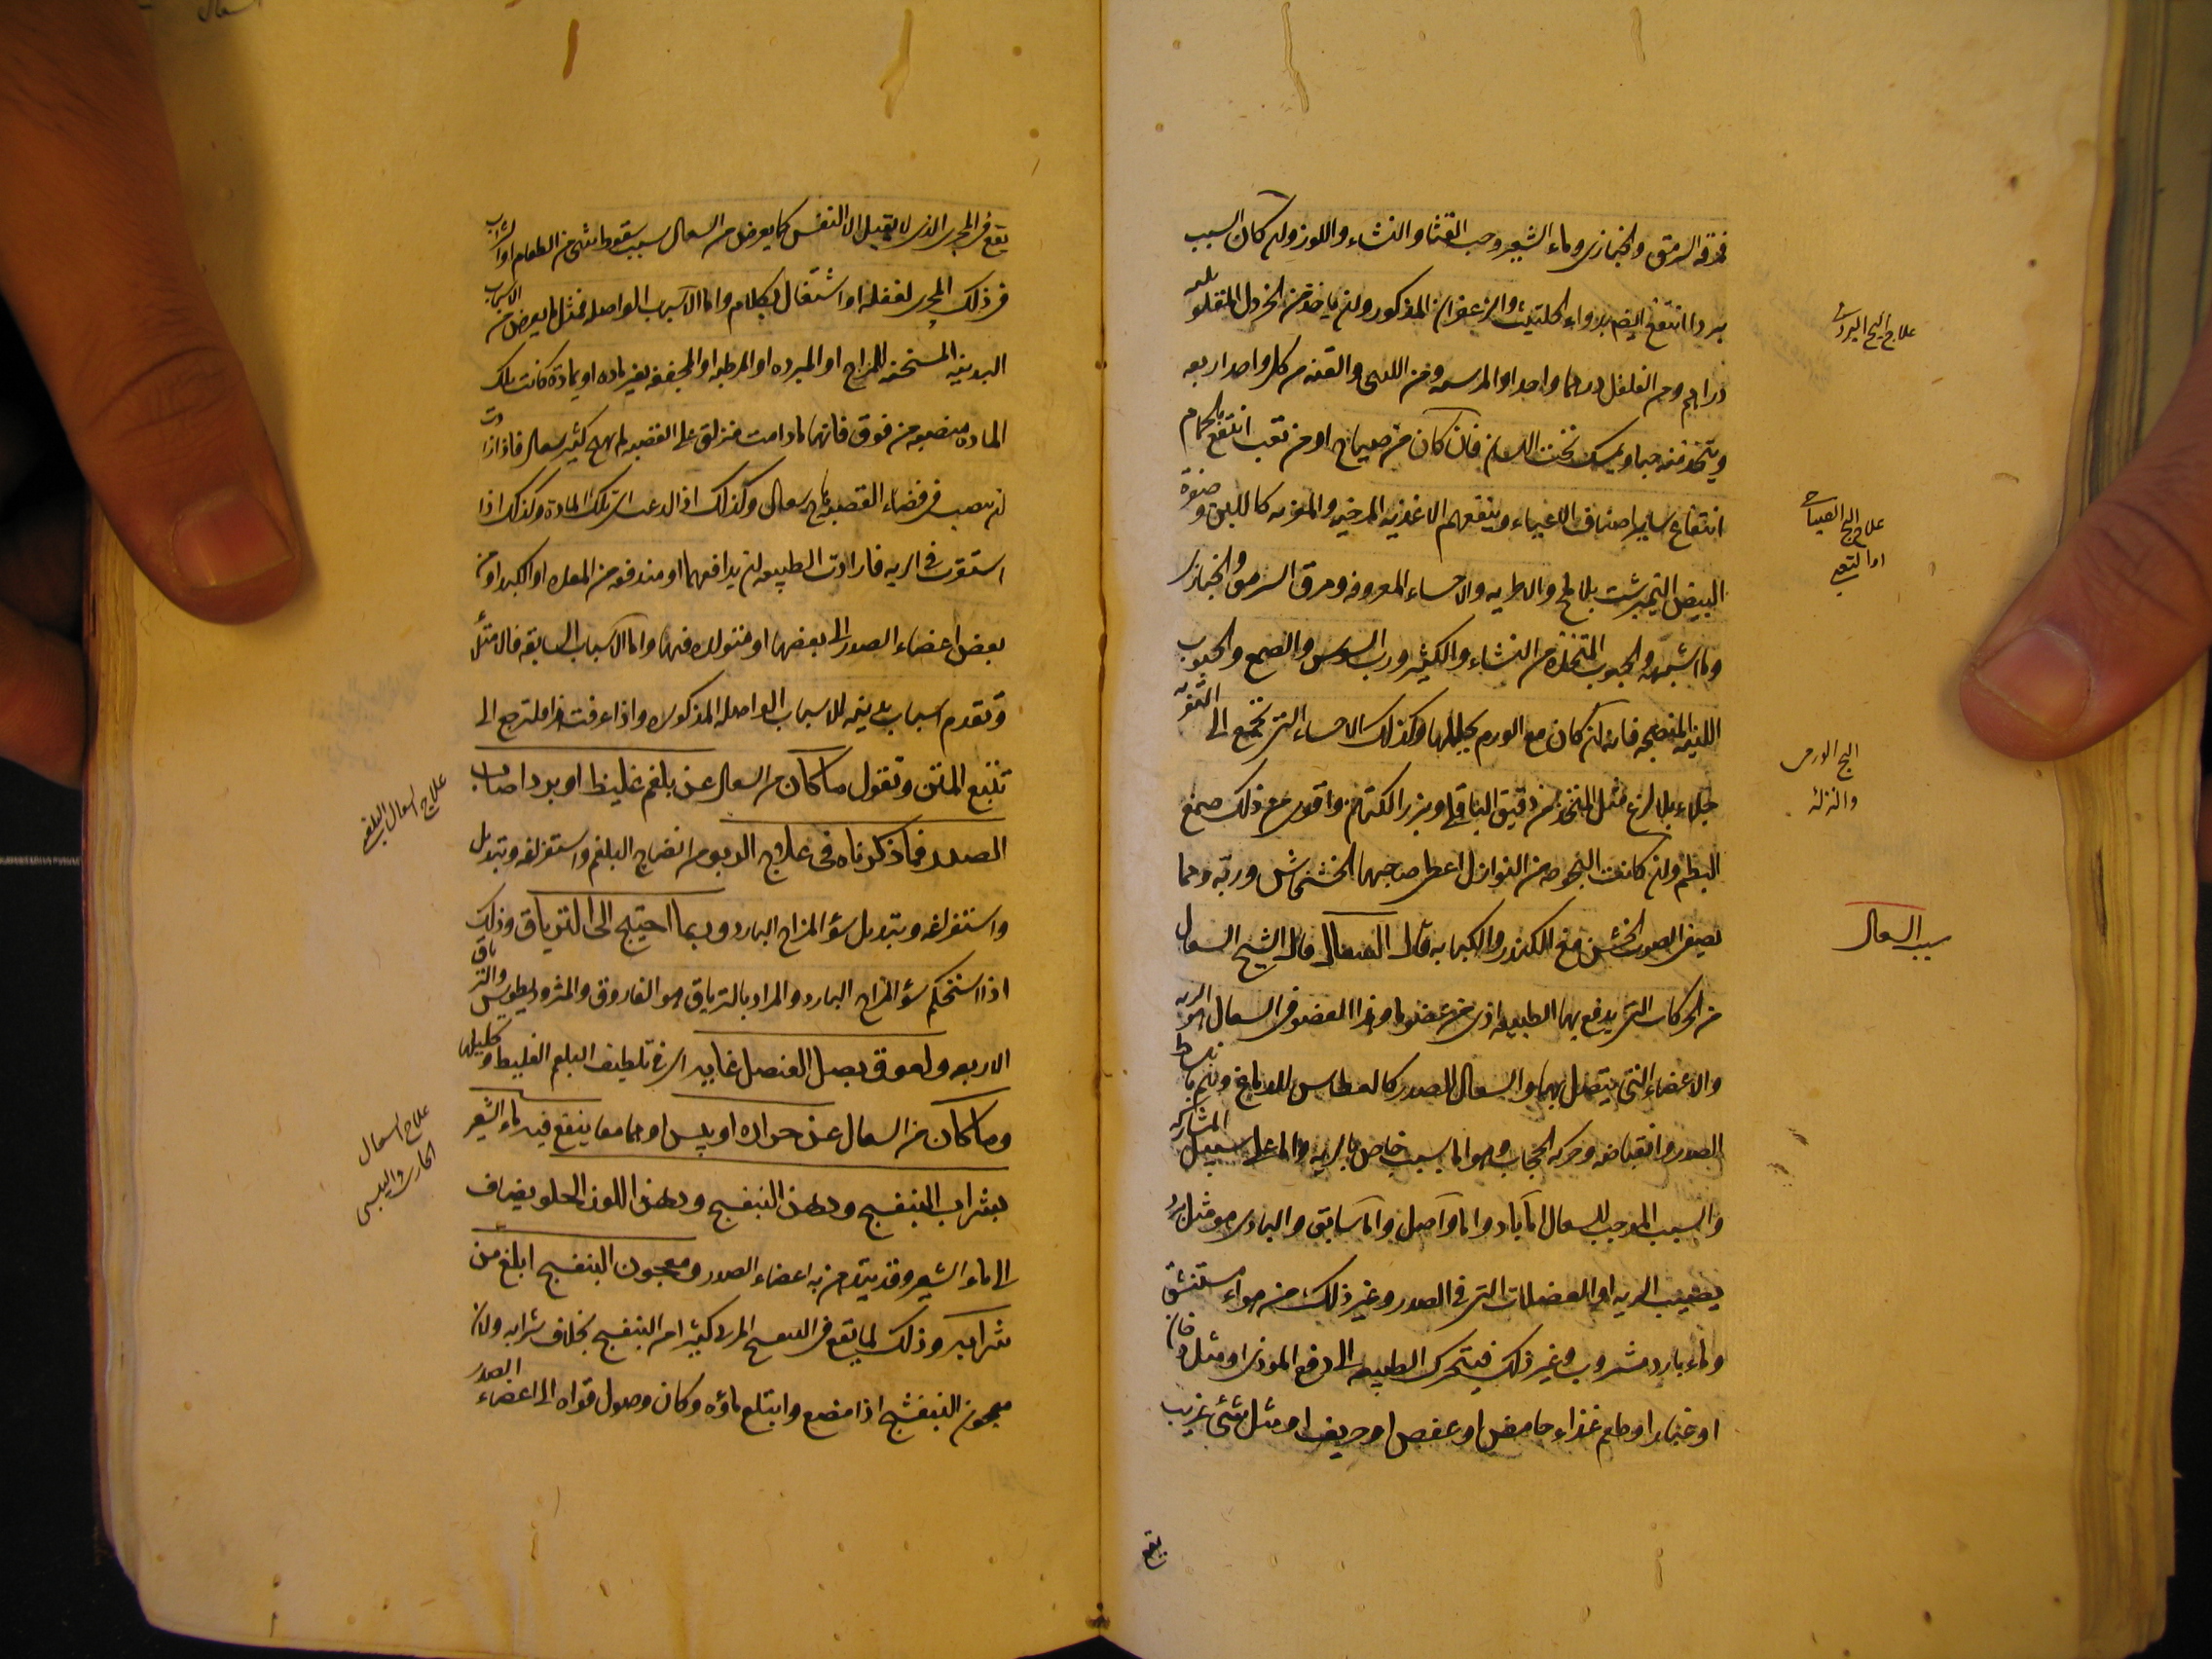 مرقة السرمق والخبازى وماء الشعير وحب القثا والنشاء واللوز وان كان السبب
بردا انتفع ايضا بدواء الحلتيت والزعفران المذكور وان ياخذ من الخردل المقلو
دراهم ومن الفلفل درهما واحدا والمر سمه ومن اللبنى والقنه من كل واحد اربعه
ويتخذ منه حبا ويمسك تحت اللسان فان كان من صياح او من تعب انتفع بالحمام
انتفاع ساير اصناف الاعياء وينفعهم الاغذيه المرخيه والمغريه كاللبن وصفرة
البيض النيمبرشت بلا ملح والاطريه والاحساء المعروفه ومرق السرمق والخبازى
وما اشبهه والحبوب المتخذه من النشاء والكثيرا ورب السوس والصمغ والحبوب
اللينه المنضجه فانه ان كان مع الورم يحللها وكذلك الاحساء التى تجمع الى التغريه
جلاء بلا لذع مثل المتخذ من دقيق الباقلى وبزر الكتان واقوى مع ذلك صمغ
البطم وان كانت البحوحه من النوازل اعطى صاحبها الخشخاش وربه ومما
يصفى الصوت الخشن مضغ الكندر والكبابه قال السعال قال الشيخ السعال
من الحركات التى يدفع بها الطبيعه اذى من عضو ما وهذا العضو فى السعال هو الريه
والاعضاء التى يتصل بها والسعال للصدر كالعطاس للدماغ ويتم بانبساط
الصدر وانقباضه وحركه الحجاب وهو اما بسبب خاص بالريه واما على سبيل المشاركه
والسبب الموجب للسعال اما باد واما واصل واما سابق والبادى هو مثل برد
يصيب الريه او العضلات التى فى الصدر وغير ذلك من هواء مستنشق
وماء بارد مشروب وغير ذلك فيتحرك الطبيعه الى دفع الموذى او مثل دخان
او غبار او طعم غذاء حامض او عفص او حريف او مثل شئ غريب
يقع
علاج البح البردى
علاج البح الصياحى
او التعبى
البح الورمى
والنزلى
سبب السعال
يقع فى المجرى الذى لا يقبل الا النفس كما يعرض من السعال بسبب سقوط شئ من الطعام او الشراب
فى ذلك المجرى لغفلة او اشتغال بكلام واما الاسباب الواصله فمثل ما يعرض من الاسباب
البدنيه المسخنه للمزاج او المبرده او المرطبه او المجففه بغير ماده او بمادة كانت تلك
الماده منصبه من فوق فانها ما دامت منزلق على القصبه لم يهج كثير سعال فاذا ارادت
ان ينصب فى فضاء القصبه هاج سعال وكذلك اذا لدعت تلك المادة وكذلك اذا
استقرت فى الريه فارادت الطبيعه ان يدافعها او مندفعه من المعده او الكبد او من
بعض اعضاء الصدر الى بعضها او متولده فيها واما الاسباب السابقه فالامتلاء
وتقدم اسباب بدنيه للاسباب الواصله المذكوره واذا عرفت هذا فلنرجع الى
تتبع المتن ونقول ما كان من السعال عن بلغم غليظ او برد اصاب
الصدر فما ذكرناه فى علاج الربو من انضاج البلغم واستفراغه وتبديل
واستفراغه وتبديل سؤ المزاج البارد وربما احتيج الى الترياق وذلك
اذا استحكم سؤ المزاج البارد والمراد بالترياق هو الفاروق والمثروديطوس والترياق
الاربعه ولعوق بصل العنصل غايه اى فى تلطيف البلغم الغليظ وتحليلها
وما كان من السعال عن حراره او يبس او هما معا ينفع فيه ماء الشعير
بشراب البنفسج ودهن البنفسج ودهن اللوز الحلو يضاف
الى ماء الشعير وقد يتدهن به اعضاء الصدر ومعجون البنفسج ابلغ من
شرابه وذلك لما يقع فى البنفسج المربى كثيرا من البنفسج بخلاف شرابه ولان
معجون البنفسج اذا مضغ وابتلع ماؤه وكان وصول قواه الى اعضاء الصدر
علاج السعال البلغمى
علاج السعال
الحارى واليبسى